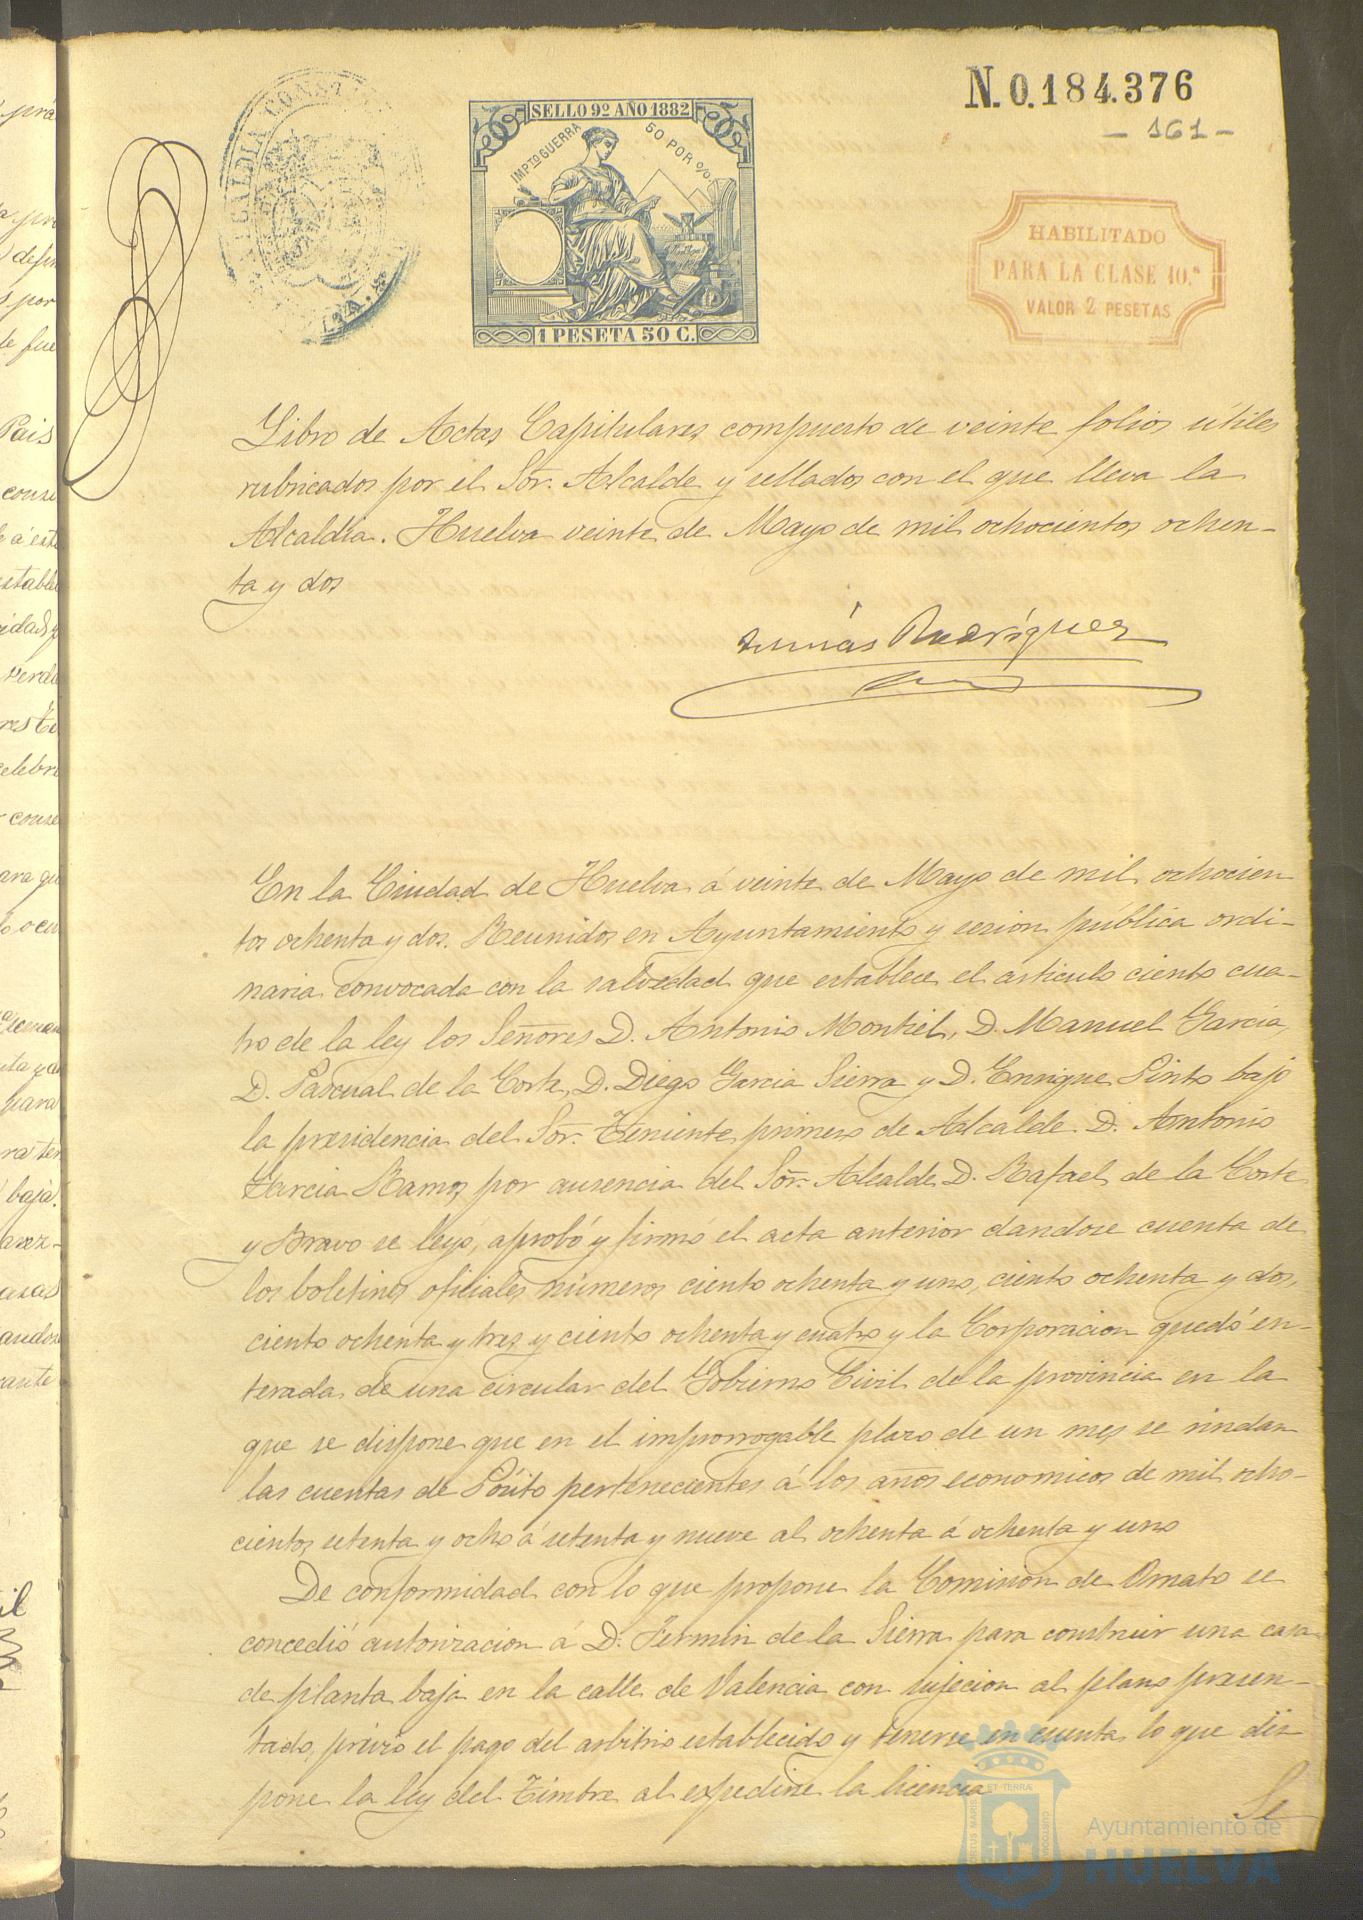 N. 0.184.376
- 161 -
ALCALDIA CONST
SELLO 9º AÑO 1882
IMPTO GUERRA 50 POR %
1 PESETA 50 C.
HABILITADO
PARA LA CLASE 10.ª
VALOR 2 PESETAS
Libro de Actas Capitulares compuesto de veinte folios útiles
rubricados por el Sor. Alcalde y sellados con el que lleva la
Alcaldia. Huelva veinte de Mayo de mil ochocientos ochen-
ta y dos
Rodríguez
En la Ciudad de Huelva á veinte de Mayo de mil ochocien
tos ochenta y dos. Reunidos en Ayuntamiento y sesion pública ordi-
naria convocada con la salvedad que establece el articulo ciento cua-
tro de la ley los Señores D. Antonio Montiel, D. Manuel Garcia,
D. Pascual de la Corte, D. Diego Garcia Sierra y D. Enrique Pinto bajo
la presidencia del Sor. Teniente primero de Alcalde D. Antonio
Garcia Ramos por ausencia del Sor. Alcalde D. Rafael de la Corte
y Bravo se leyó, aprobó y firmó el acta anterior dandose cuenta de
los boletines oficiales números ciento ochenta y uno, ciento ochenta y dos,
ciento ochenta y tres y ciento ochenta y cuatro y la Corporacion quedó en-
terada de una circular del Gobierno Civil de la provincia en la
que se dispone que en el improrrogable plazo de un mes se rindan
las cuentas de Pósito pertenecientes á los años economicos de mil ocho-
cientos setenta y ocho á setenta y nueve al ochenta á ochenta y uno
De conformidad con lo que propone la Comision de Ornato se
concedió autorizacion á D. Fermin de la Sierra para construir una casa
de planta baja en la calle de Valencia con sujecion al plano presen-
tado, prévio el pago del arbitrio establecido y tenerse en cuenta lo que dis
pone la ley del Timbre al expedirse la licencia
Se
Ayuntamiento de
HUELVA